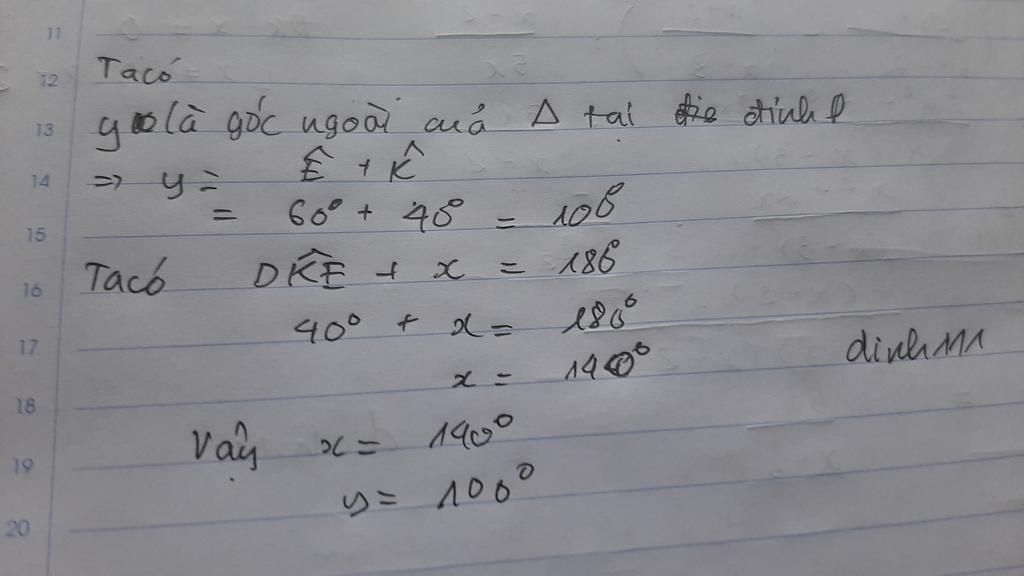 11
12 Ta có
13 y là góc ngoài cuả Δ tại đỉnh D
14 => y = Ê + K̂
15 = 60° + 40° = 100°
16 Ta có DK̂E + x = 180°
17 40° + x = 180°
18 x = 140° dinh111
19 Vậy x = 140°
20 y = 100°